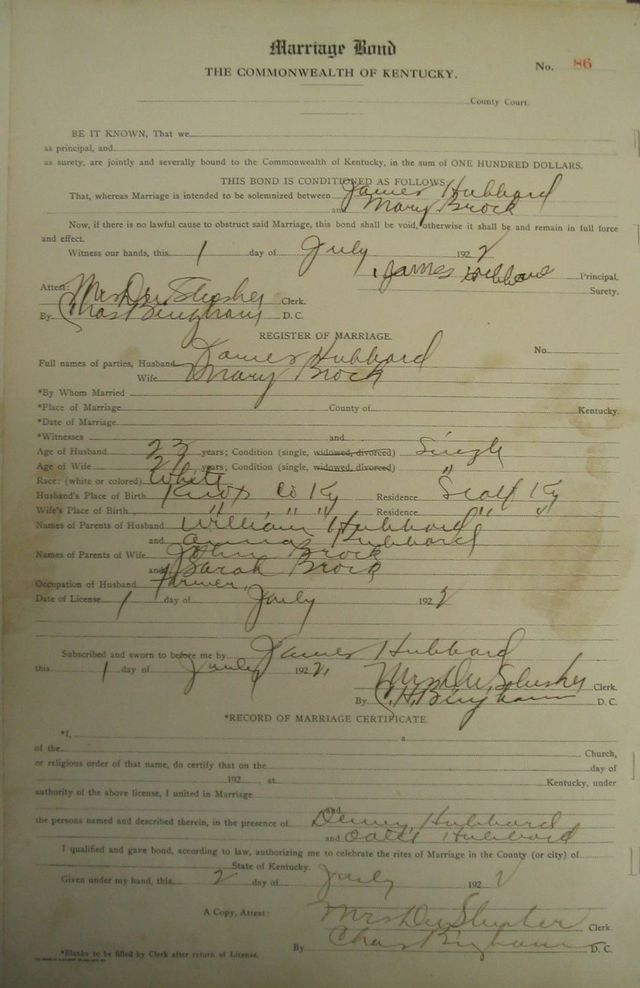 Marriage Bond
No. 86
THE COMMONWEALTH OF KENTUCKY.
County Court.
BE IT KNOWN, That we
as principal, and
as surety, are jointly and severally bound to the Commonwealth of Kentucky, in the sum of ONE HUNDRED DOLLARS.
THIS BOND IS CONDITIONED AS FOLLOWS:
That, whereas Marriage is intended to be solemnized between James Hubbard
and Mary Brock
Now, if there is no lawful cause to obstruct said Marriage, this bond shall be void, otherwise it shall be and remain in full force
and effect.
Witness our hands, this 1 day of July 1922
James Hubbard Principal.
Surety.
Attest: Mrs Clerk.
By Chas Bingham D. C.
REGISTER OF MARRIAGE.
No.
Full names of parties, Husband James Hubbard
Wife Mary Brock
*By Whom Married
*Place of Marriage County of Kentucky.
*Date of Marriage
*Witnesses and
Age of Husband 23 years; Condition (single, widowed, divorced) Single
Age of Wife 21 years; Condition (single, widowed, divorced) "
Race: (white or colored) White
Husband's Place of Birth Knox Co Ky Residence Ky
Wife's Place of Birth " " " Residence " "
Names of Parents of Husband William Hubbard
and Hubbard
Names of Parents of Wife John Brock
and Sarah Brock
Occupation of Husband Farmer
Date of License 1 day of July 1922
Subscribed and sworn to before me by James Hubbard
this 1 day of July 1922
Mrs Clerk.
By Bingham D. C.
*RECORD OF MARRIAGE CERTIFICATE.
*I, a
of the Church,
or religious order of that name, do certify that on the day of
192 at Kentucky, under
authority of the above license, I united in Marriage
and
the persons named and described therein, in the presence of Denny Hubbard
and Hubbard
I qualified and gave bond, according to law, authorizing me to celebrate the rites of Marriage in the County (or city) of
State of Kentucky.
Given under my hand, this 2 day of July 1922
A Copy, Attest: Mrs Clerk.
By Chas Bingham D. C.
*Blanks to be filled by Clerk after return of License.